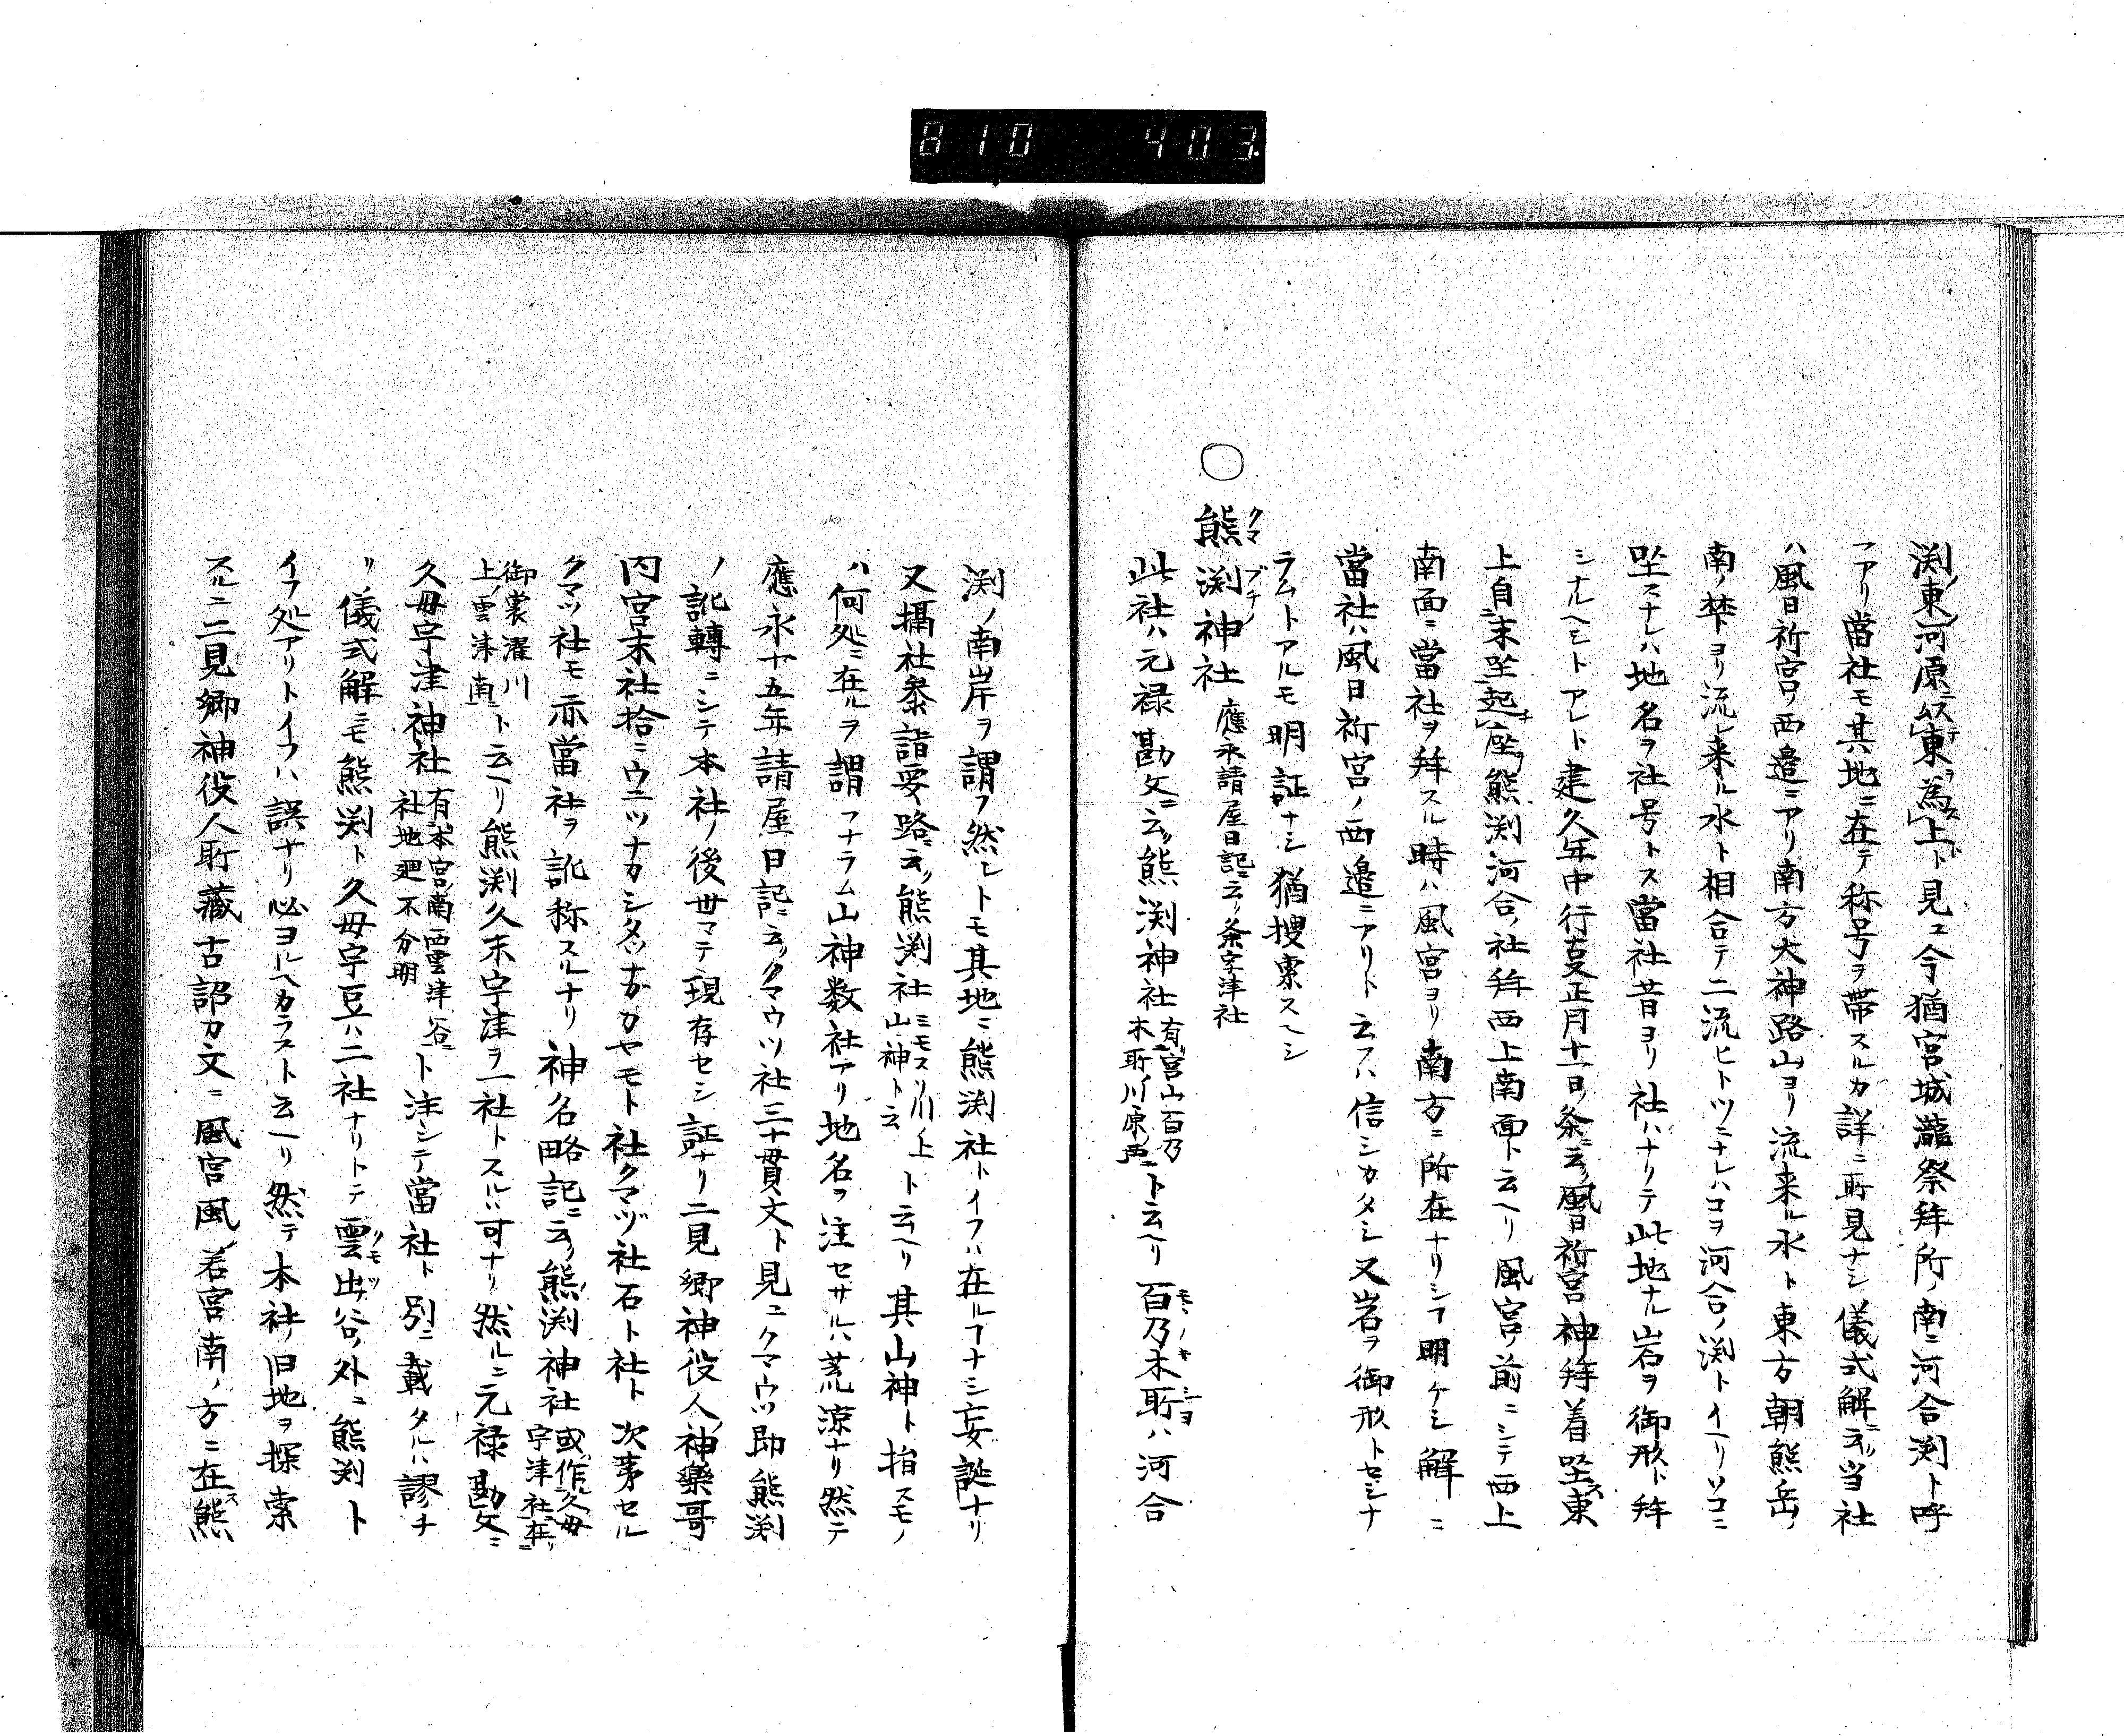 810 403
渕ノ東ノ河原ニス以テ東ヲ為ス上ト見ユ今猶宮城瀧祭拜所ノ南ニ河合渕ト呼
フアリ當社モ其地ニ在テ称号ヲ帯スルカ詳ニ所見ナシ儀式解ニ云ク当社
ハ風日祈宮ノ西邉ニアリ南方大神路山ヨリ流来ル水ト東方朝熊岳ノ
南ノ梺ヨリ流レ来ル水ト相合テ二流ヒトツニナレハコヲ河合ノ渕トイヘリソコニ
坐スナレハ地名ヲ社号トス當社昔ヨリ社ハナリテ此地ナル岩ヲ御形ト拜
シナルヘシトアレト建久年中行叓正月十一日ノ条ニ云ク風日祈宮神拜着坐ス東
上自ニ末坐起ナ座ヲ熊渕河合ノ社拜西上南面ト云ヘリ風宮ノ前ニシテ西上
南面ニ當社ヲ拜スル時ハ風宮ヨリ南方ニ所在ナリシヿ明ケシ解ニ
當社ハ風日祈宮ノ西邉ニアリト云フハ信シカタシ又岩ヲ御形トセシナ
ラムトアルモ明証ナシ猶搜索スヘシ
○熊渕神社 クマブチノ 應永請屋日記ニ云ク条字津社
此社ハ元禄勘文ニ云ク熊渕神社 有宮山百乃木所川原ノ西ニ ト云ヘリ百乃木所ハ河合 モヽノキシヨ
渕ノ南岸ヲ謂フ然レトモ其地ニ熊渕社トイフハ在ルヿナシ妄誕ナリ
又攝社叅詣要路ニ云ク熊渕社 ミモスソ川ノ上山神ト云 ト云ヘリ其山神ト指スモノ
ハ何処ニ在ルヲ謂フナラム山神数社アリ地名ヲ注セサルハ荒涼ナリ然テ
應永十五年請屋日記ニ云ククマウツ社三十貫文ト見ユクマウツ即熊渕
ノ訛轉ニシテ本社ノ後世マテ現存セシ証ナリ二見郷神役人ノ神樂哥
内宮末社拾ニウニツナカシタツナカヤモト社クマヅ社石ト社ト次苐セル
クマツ社モ亦當社ヲ訛称スルナリ神名略記ニ云ク熊渕神社 或ハ作ル久毋宇津社ニ在リ
御裳濯川上ノ雲津南ニ ト云ヘリ熊渕久末宇津ヲ一社トスルハ可ナリ然ルニ元禄勘文ニ
久毋宇津神社 有ニ本宮ノ南西雲津谷ニ社地廻不分明 ト注シテ當社ト別ニ載タルハ謬ナ
リ儀式解ニモ熊渕ト久毋宇豆ハ二社ナリトテ雲出谷ノ外ニ熊渕ト クモツ
イフ処アリトイフハ誤ナリ必ヨルヘカラスト云ヘリ然テ本社ノ旧地ヲ探索
スルニ二見郷神役人所蔵古詔刀文ニ風宮風ノ若宮南ノ方ニ在ス熊